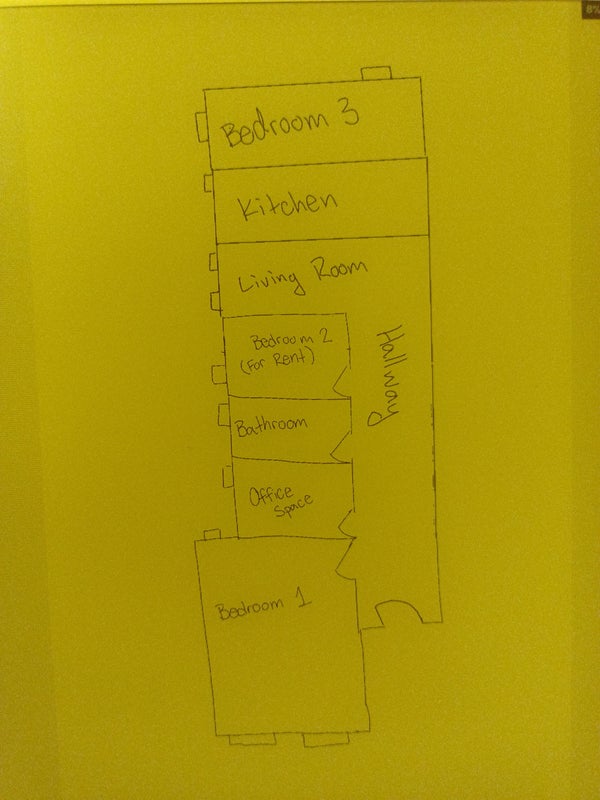 8%
Bedroom 3
Kitchen
Living Room
Bedroom 2
(For Rent)
Hallway
Bathroom
Office
Space
Bedroom 1